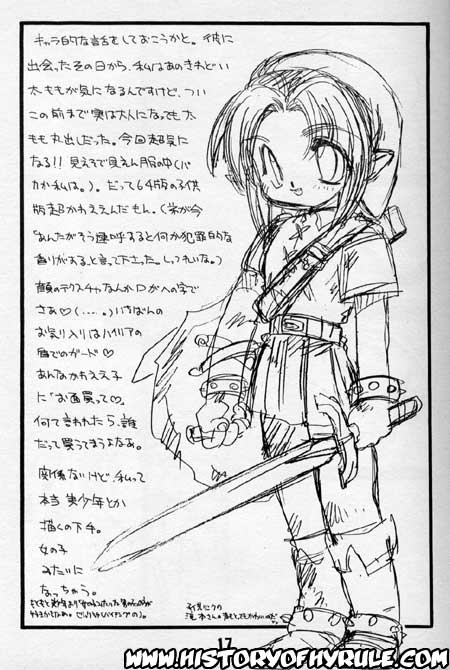 キャラ的な話をしておこうかと。彼に
出会ったその日から、私はあのきわどい
太ももが気になるんですけど、つい
この前まで実は大人になっても太
もも丸出しだった。今回超気に
なる!!見えそで見えん服の中(バ
カか私は。)。だって64版の子供
版超かわええんだもん。(弟が今
「あんたがそう
と言って下さった。しっつれいな。)
顔のテクスチャなんか口がへの字で
さあ♡(……。)いちばんの
お気に入りはハイリアの
盾でのガード♡
あんなかわええ子
に「お面買って♡」
何て言われたら、誰
だって買うてまうよなあ。
関係ないけど、私って
本当 美少年とか
描くの下手。
女の子
みたいに
なっちゃう。
17
WWW.HISTORYOFHYRULE.COM